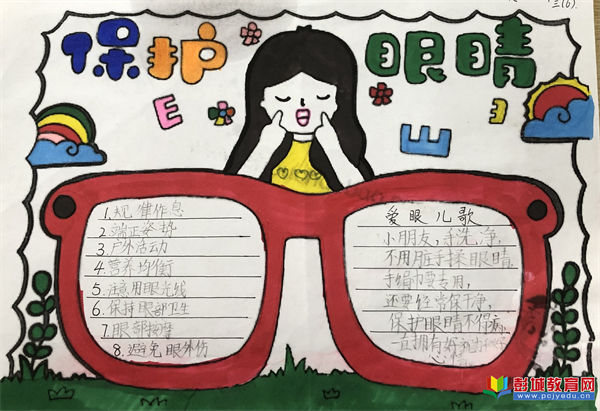 三(6).
保护眼睛
E
E
E
E
1.规律作息
2.端正姿势
3.户外活动
4.营养均衡
5.注意用眼光线
6.保持眼部卫生
7.眼部按摩
8.避免眼外伤
爱眼儿歌
小朋友,手洗净,
不用脏手揉眼睛,
手绢要专用,
还要经常保干净,
保护眼睛不得病,
一直拥有
彭城教育网
www.pcjyedu.cn